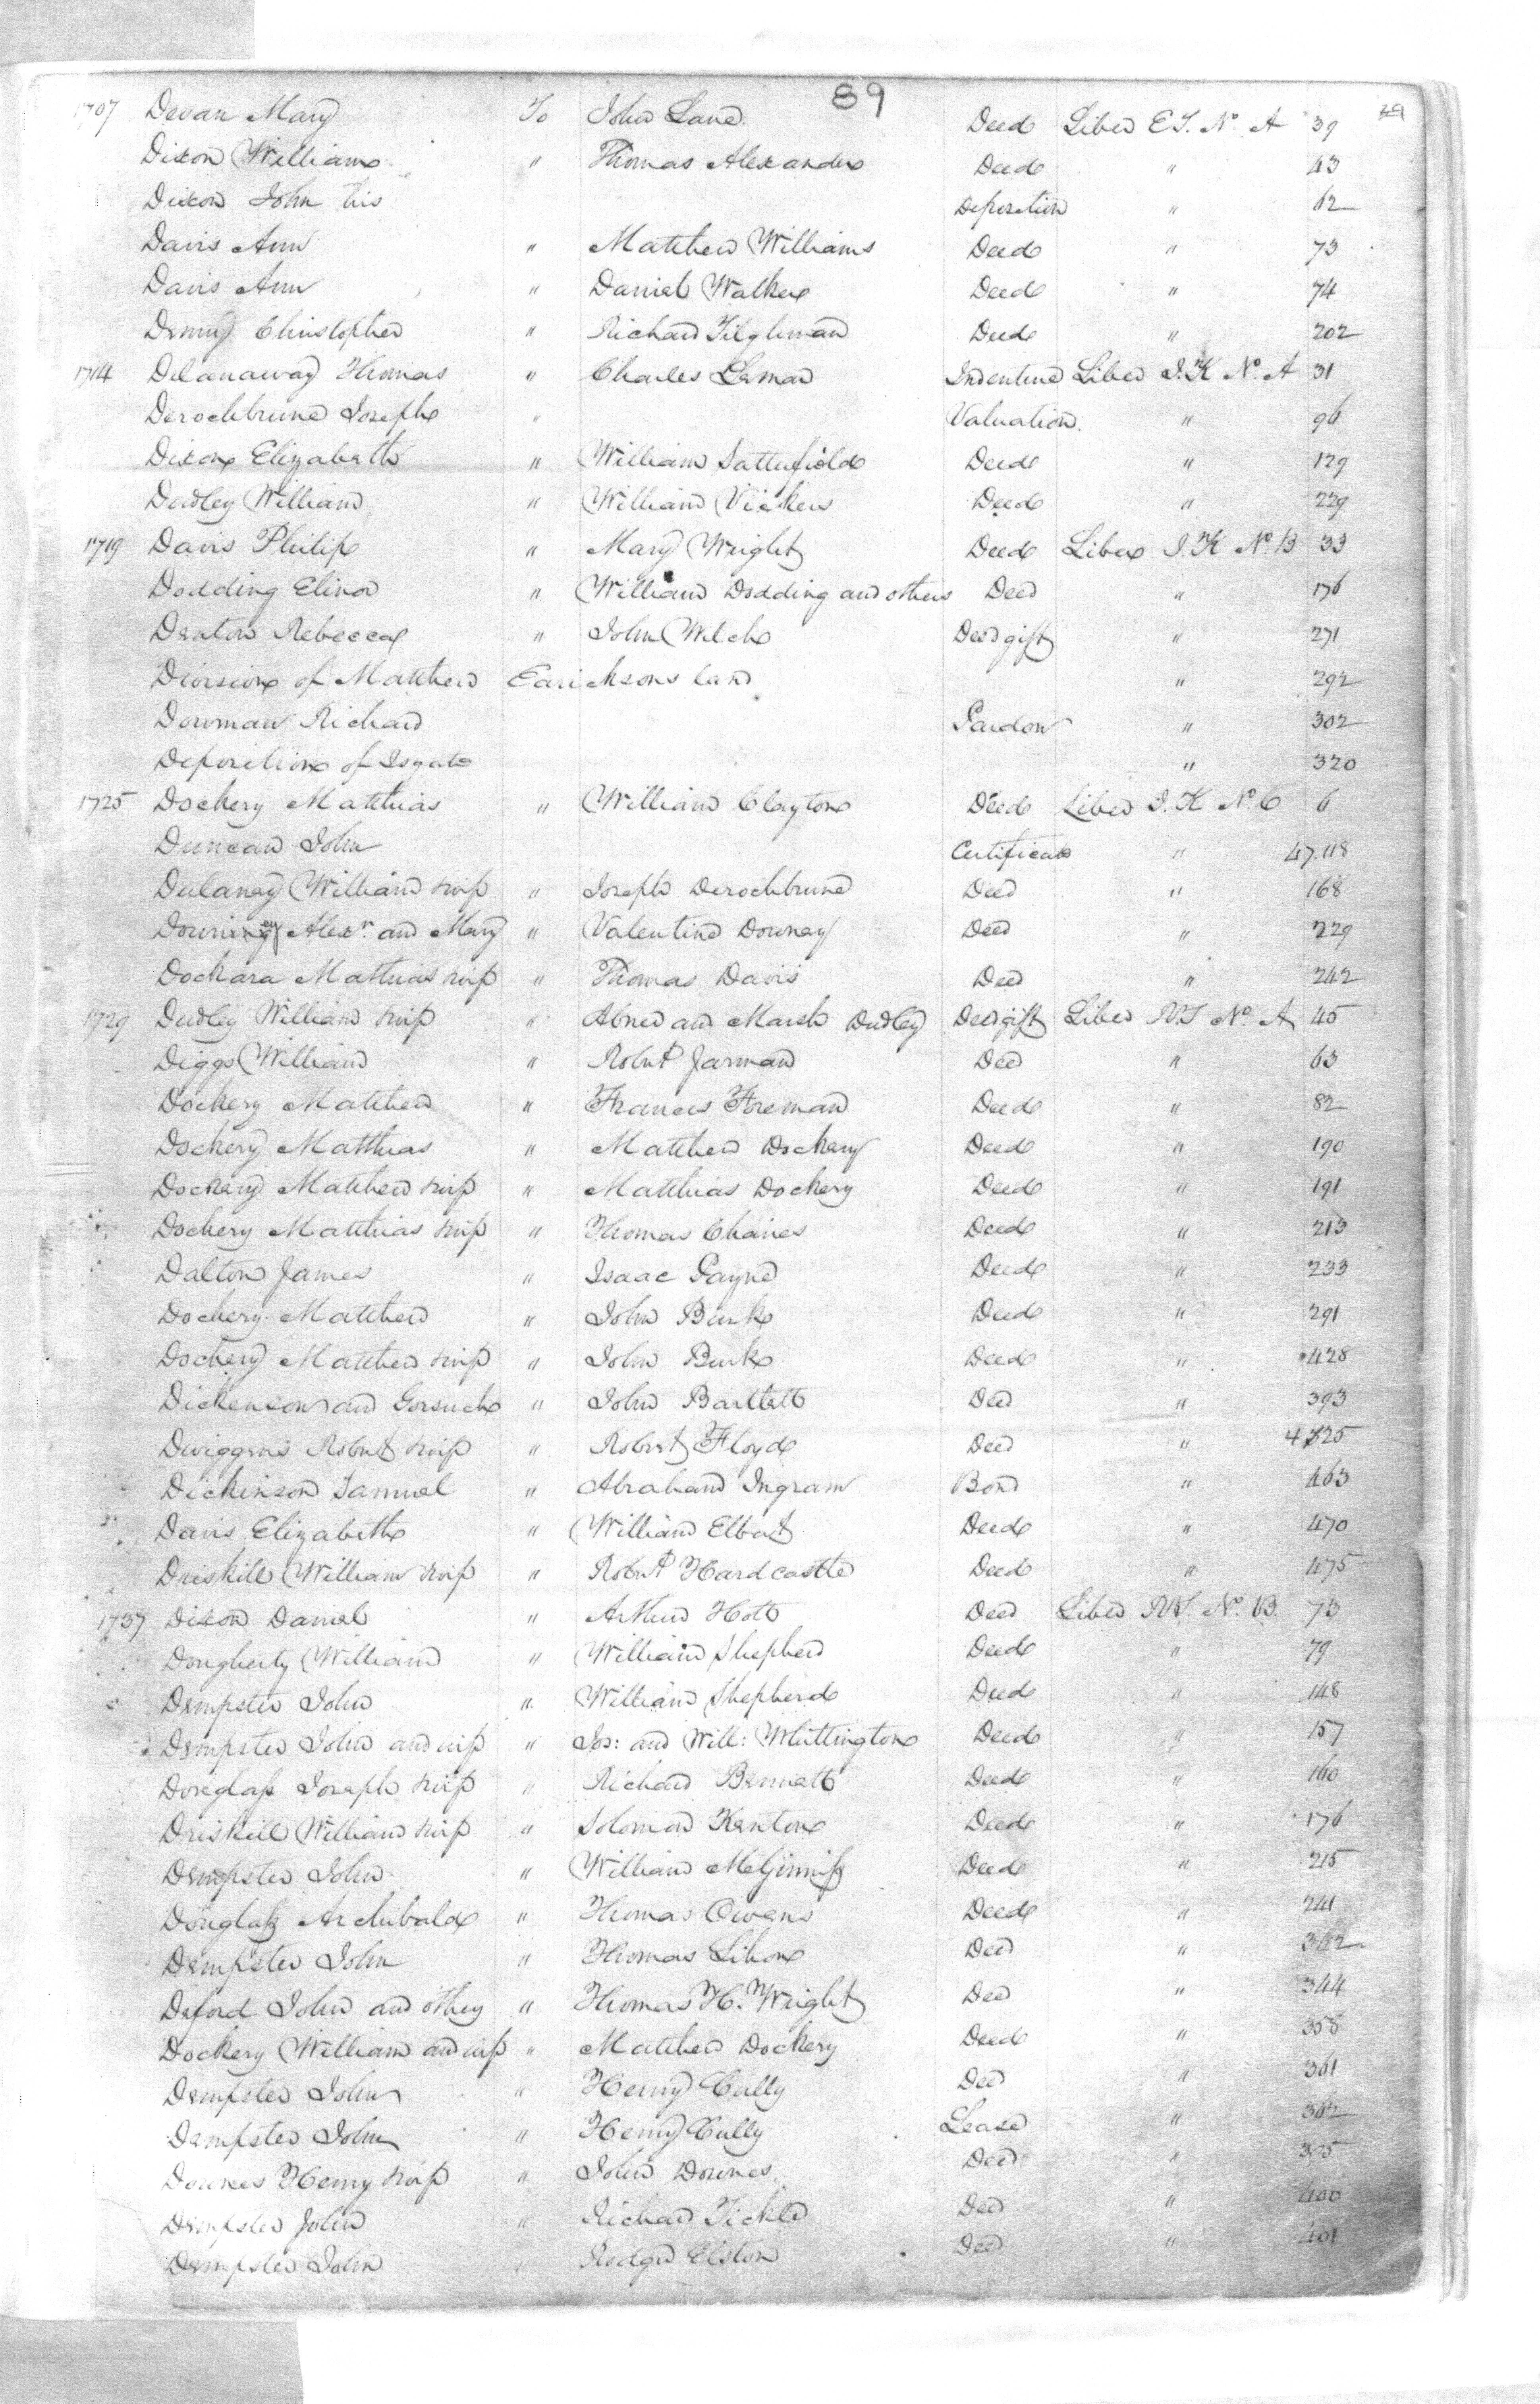 89
29
1707 Devan Mary To John Lane Deed Liber E.T. No. A 39
Dixon William " Thomas Alexander Deed " 43
Dixon John his Deposition " 62
Davis Ann " Matthew Williams Deed " 73
Davis Ann " Daniel Walker Deed " 74
Denny Christopher " Richard Tilghman Deed " 202
1714 Delanaway Thomas " Charles Lemar Indenture Liber I.K No. A 31
Derochbrune Joseph " Valuation. " 96
Dixon Elizabeth " William Satterfield Deed " 129
Dudley William " William Vickers Deed " 229
1719 Davis Philip " Mary Wright Deed Liber I.K No. B 33
Dodding Elinor " William Dodding and others Deed " 176
Denton Rebecca " John Welch Deed gift " 271
Division of Matthew Earicksons land " 292
Dowman Richard Pardon " 302
Deposition of Isgate " 320
1725 Dockery Matthias " William Clayton Deed Liber I.K No. C 6
Duncan John Certificate " 47.118
Dulaney William & wife " Joseph Derochbrune Deed " 168
Downey Alexr. and Mary " Valentine Downey Deed " 229
Dockara Mathias & wife " Thomas Davis Deed " 242
1729 Dudley William & wife " Abner and Marsh Dudley Deed gift Liber R.T No. A 45
Diggs William " Robert Jarman Deed " 63
Dockery Matthew " Francis Foreman Deed " 82
Dockery Matthias " Matthew Dockery Deed " 190
Dockery Matthew & wife " Matthias Dockery Deed " 191
Dockery Matthias & wife " Thomas Chaires Deed " 213
Dalton James " Isaac Payne Deed " 233
Dockery Matthew " John Burk Deed " 291
Dockery Matthew & wife " John Burk Deed " 428
Dickenson and Gorsuch " John Bartlett Deed " 393
Dwiggens Robert & wife " Robert Floyd Deed " 425
Dickinson Samuel " Abraham Ingram Bond " 463
Davis Elizabeth " William Elbert Deed " 470
Driskill William & wife " Robert Hardcastle Deed " 475
1737 Dixon Daniel " Arthur Holt Deed Liber R.T. No. B. 73
Dougherty William " William Shepherd Deed " 79
Dempster John " William Shepherd Deed " 148
Dempster John and wife " Jos: and Will: Whittington Deed " 157
Douglass Joseph & wife " Richard Bennett Deed " 160
Driskill William & wife " Solomon Kenton Deed " 176
Dempster John " William McGinniss Deed " 215
Douglass Archibald " Thomas Owens Deed " 241
Dempster John " Thomas Deed "
Deford John and others " Thomas H. Wright Deed " 344
Dockery William and wife " Matthew Dockery Deed " 358
Dempster John " Henry Cully Deed " 361
Dempster John " Henry Cully Lease " 362
Downes Henry & wife " John Downes Deed "
Dempster John " Richard Tickle Deed " 400
Dempster John " Elston Deed " 401